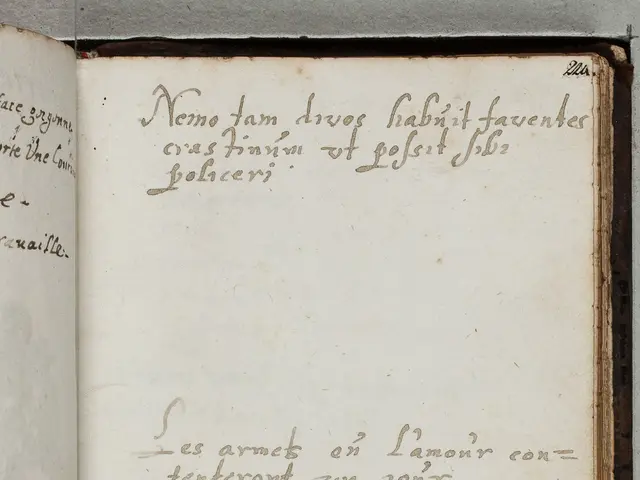 face gorgonne
orte Une
e-
ravaille.
224.
Nemo tam divos habuit faventes
crastinum vt possit sibi
policeri.
Les armes ou l'amour con=
tenteront